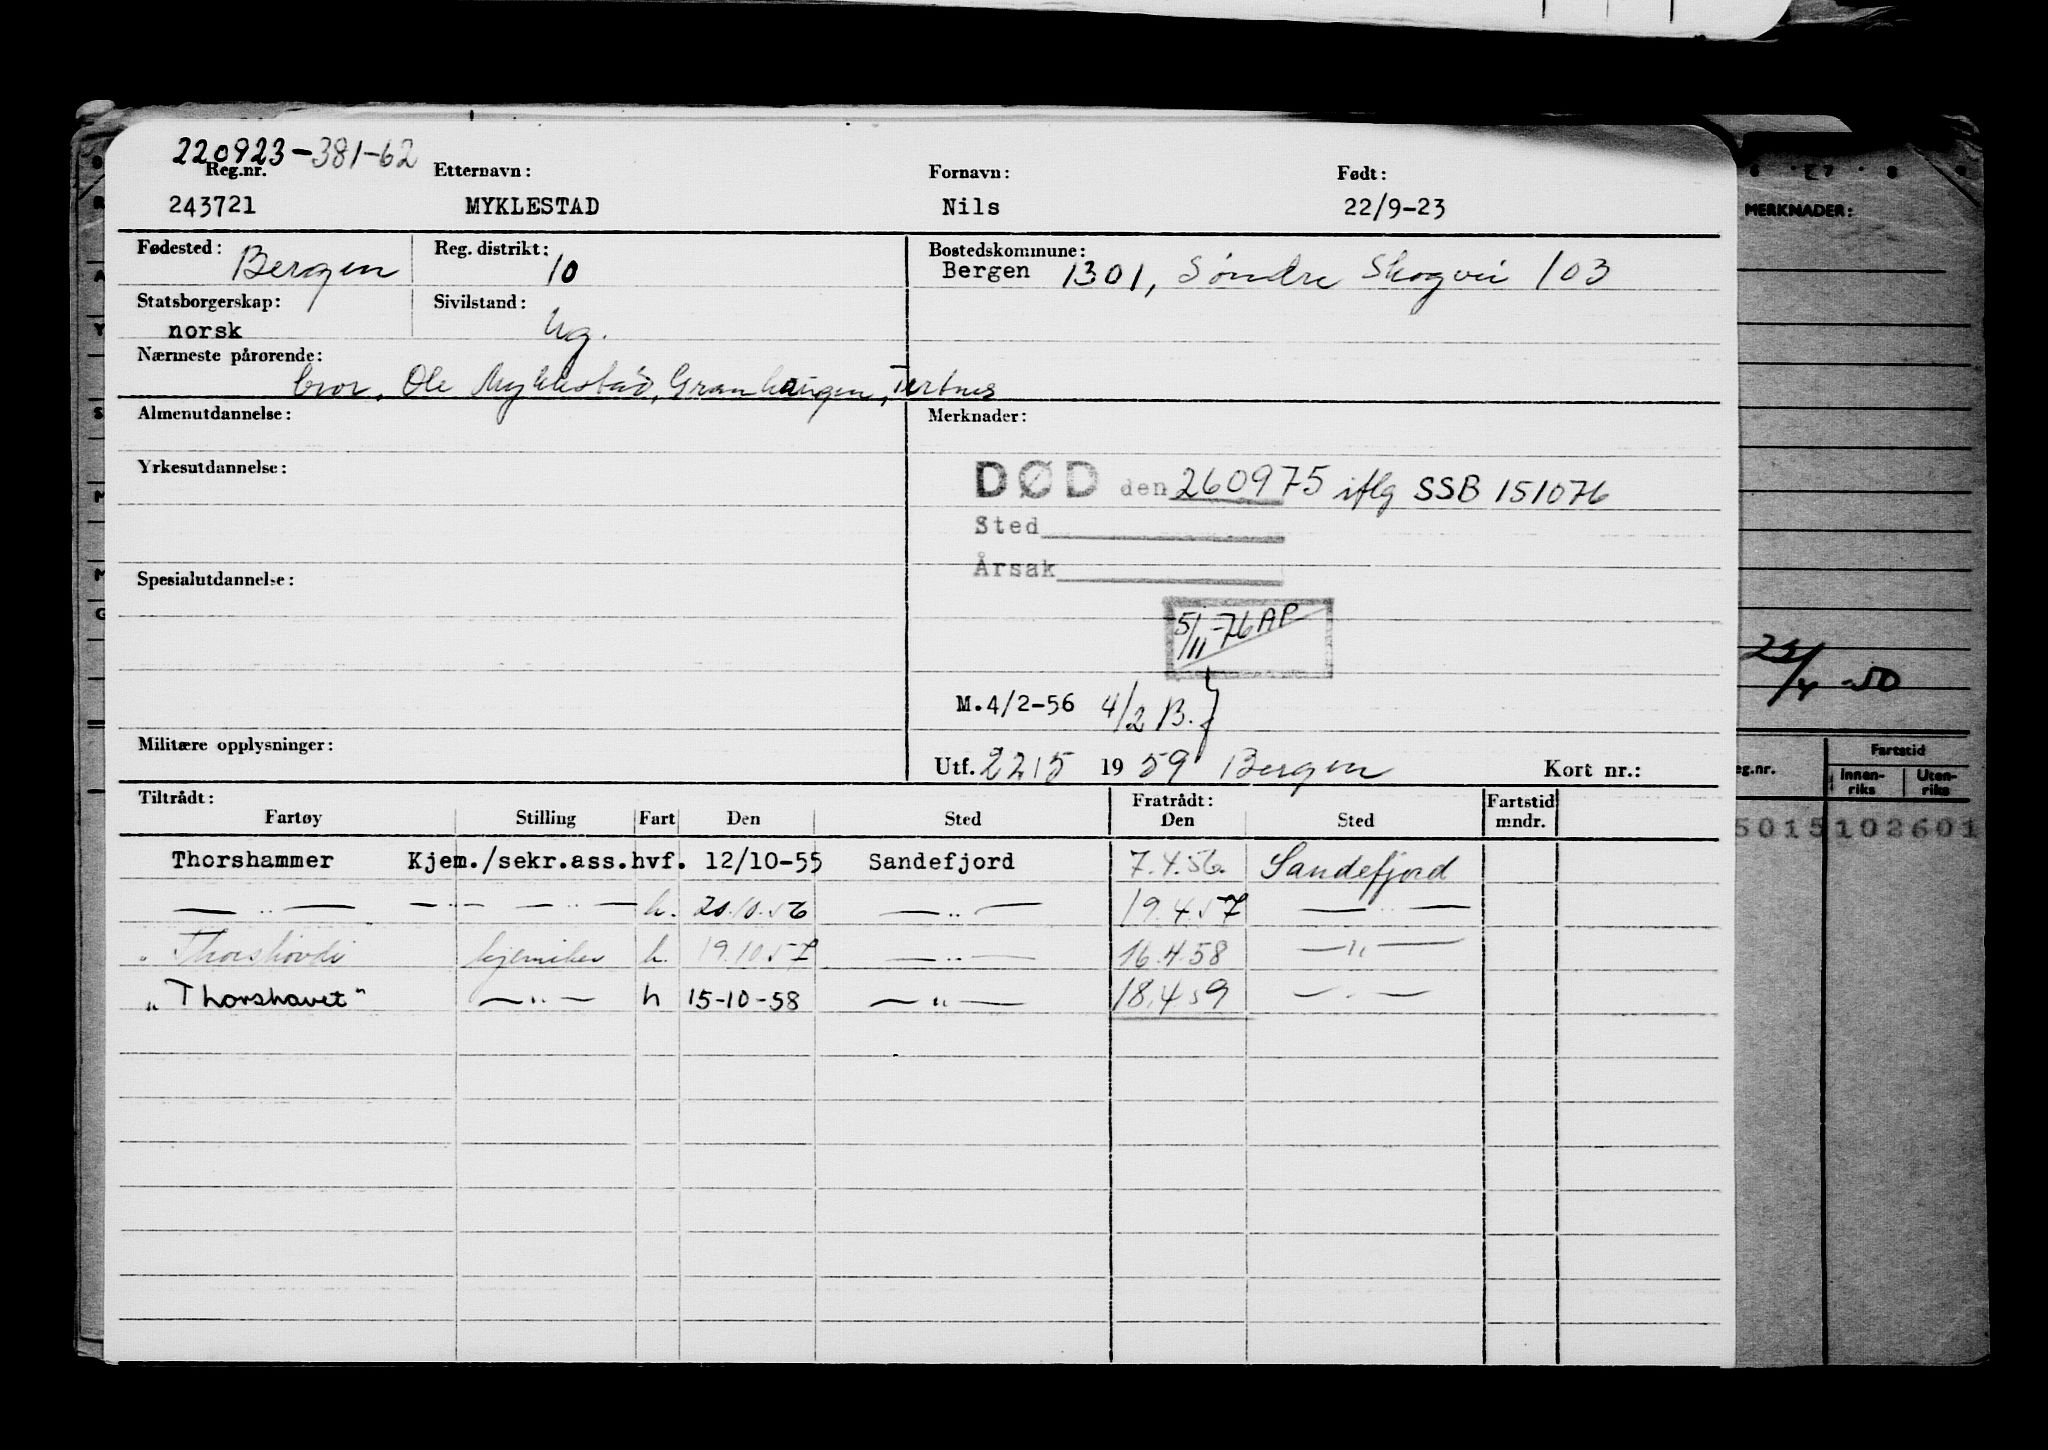 220923-381-62
Reg.nr. Etternavn: Fornavn: Født:
243721 MYKLESTAD Nils 22/9-23
MERKNADER:
Fødested: Bergen Reg. distrikt: 10 Bostedskommune:
Bergen 1301, Søndre Skogvei 103
Statsborgerskap: norsk Sivilstand: Ug.
Nærmeste pårørende:
bror, Ole Myklestad, Granhaugen, Tertnes
Almenutdannelse: Merknader:
Yrkesutdannelse:
DØD den 260975 iflg SSB 151076
Sted
Årsak
Spesialutdannelse:
5/11-76 AP
M.4/2-56 4/2 B.
25/4-50
Militære opplysninger:
Utf. 2215 1959 Bergen Kort nr.:
eg.nr. Fartstid
Innen-riks Uten-riks
5015102601
Tiltrådt: Fratrådt: Fartstid mndr.
Fartøy Stilling Fart Den Sted Den Sted
Thorshammer Kjem./sekr.ass.hvf. 12/10-55 Sandefjord 7.4.56. Sandefjord
— " — — " — — " — h. 20.10.56 — " — 19.4.57 — " —
" Thorshövdi kjemiker h. 19.10.57 — " — 16.4.58 — " —
"Thorshavet" — " — h 15-10-58 — " — 18.4.59 — " —